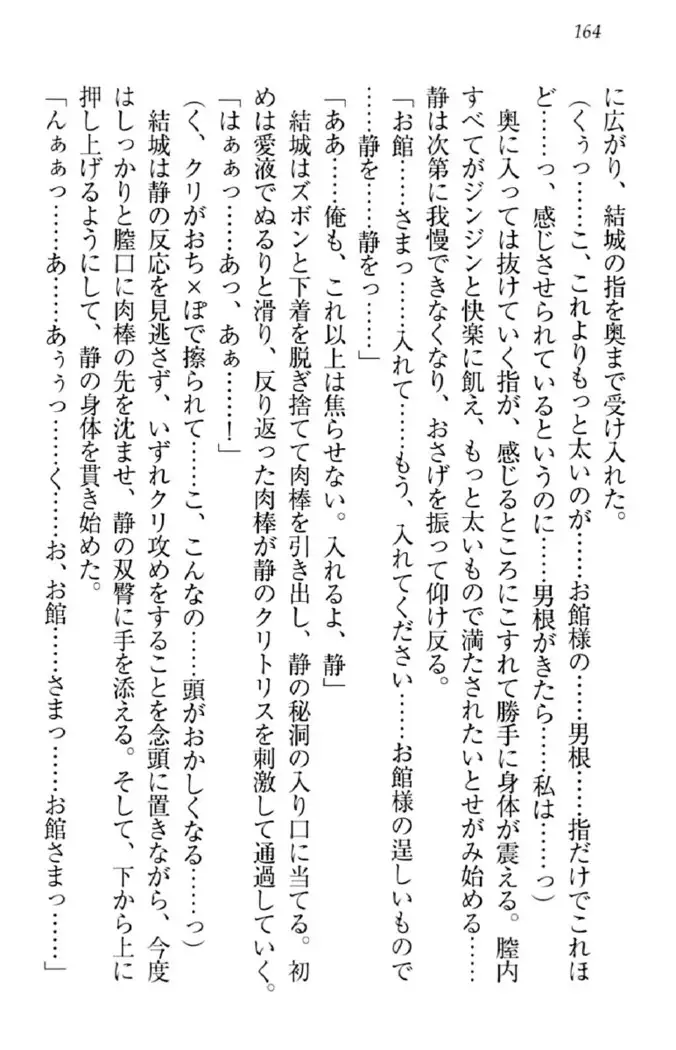 164
に広がり、結城の指を奥まで受け入れた。
（くぅっ……こ、これよりもっと太いのが……お館様の……男根……指だけでこれほ
ど……っ、感じさせられているというのに……男根がきたら……私は………っ）
奥に入っては抜けていく指が、感じるところにこすれて勝手に身体が震える。膣内
すべてがジンジンと快楽に飢え、もっと太いもので満たされたいとせがみ始める……
静は次第に我慢できなくなり、おさげを振って仰け反る。
「お館……さまっ……入れて……もう、入れてください……お館様の逞しいもので
……静を……静をっ……」
「ああ……俺も、これ以上は焦らせない。入れるよ、静」
結城はズボンと下着を脱ぎ捨てて肉棒を引き出し、静の秘洞の入り口に当てる。初
めは愛液でぬるりと滑り、反り返った肉棒が静のクリトリスを刺激して通過していく。
「はぁぁっ……あっ、あぁ……！」
（く、クリがおち×ぽで擦られて……こ、こんなの……頭がおかしくなる……っ）
結城は静の反応を見逃さず、いずれクリ攻めをすることを念頭に置きながら、今度
はしっかりと膣口に肉棒の先を沈ませ、静の双臀に手を添える。そして、下から上に
押し上げるようにして、静の身体を貫き始めた。
「んぁぁっ……あ……あぅぅっ……く……お、お館……さまっ……お館さまっ……」